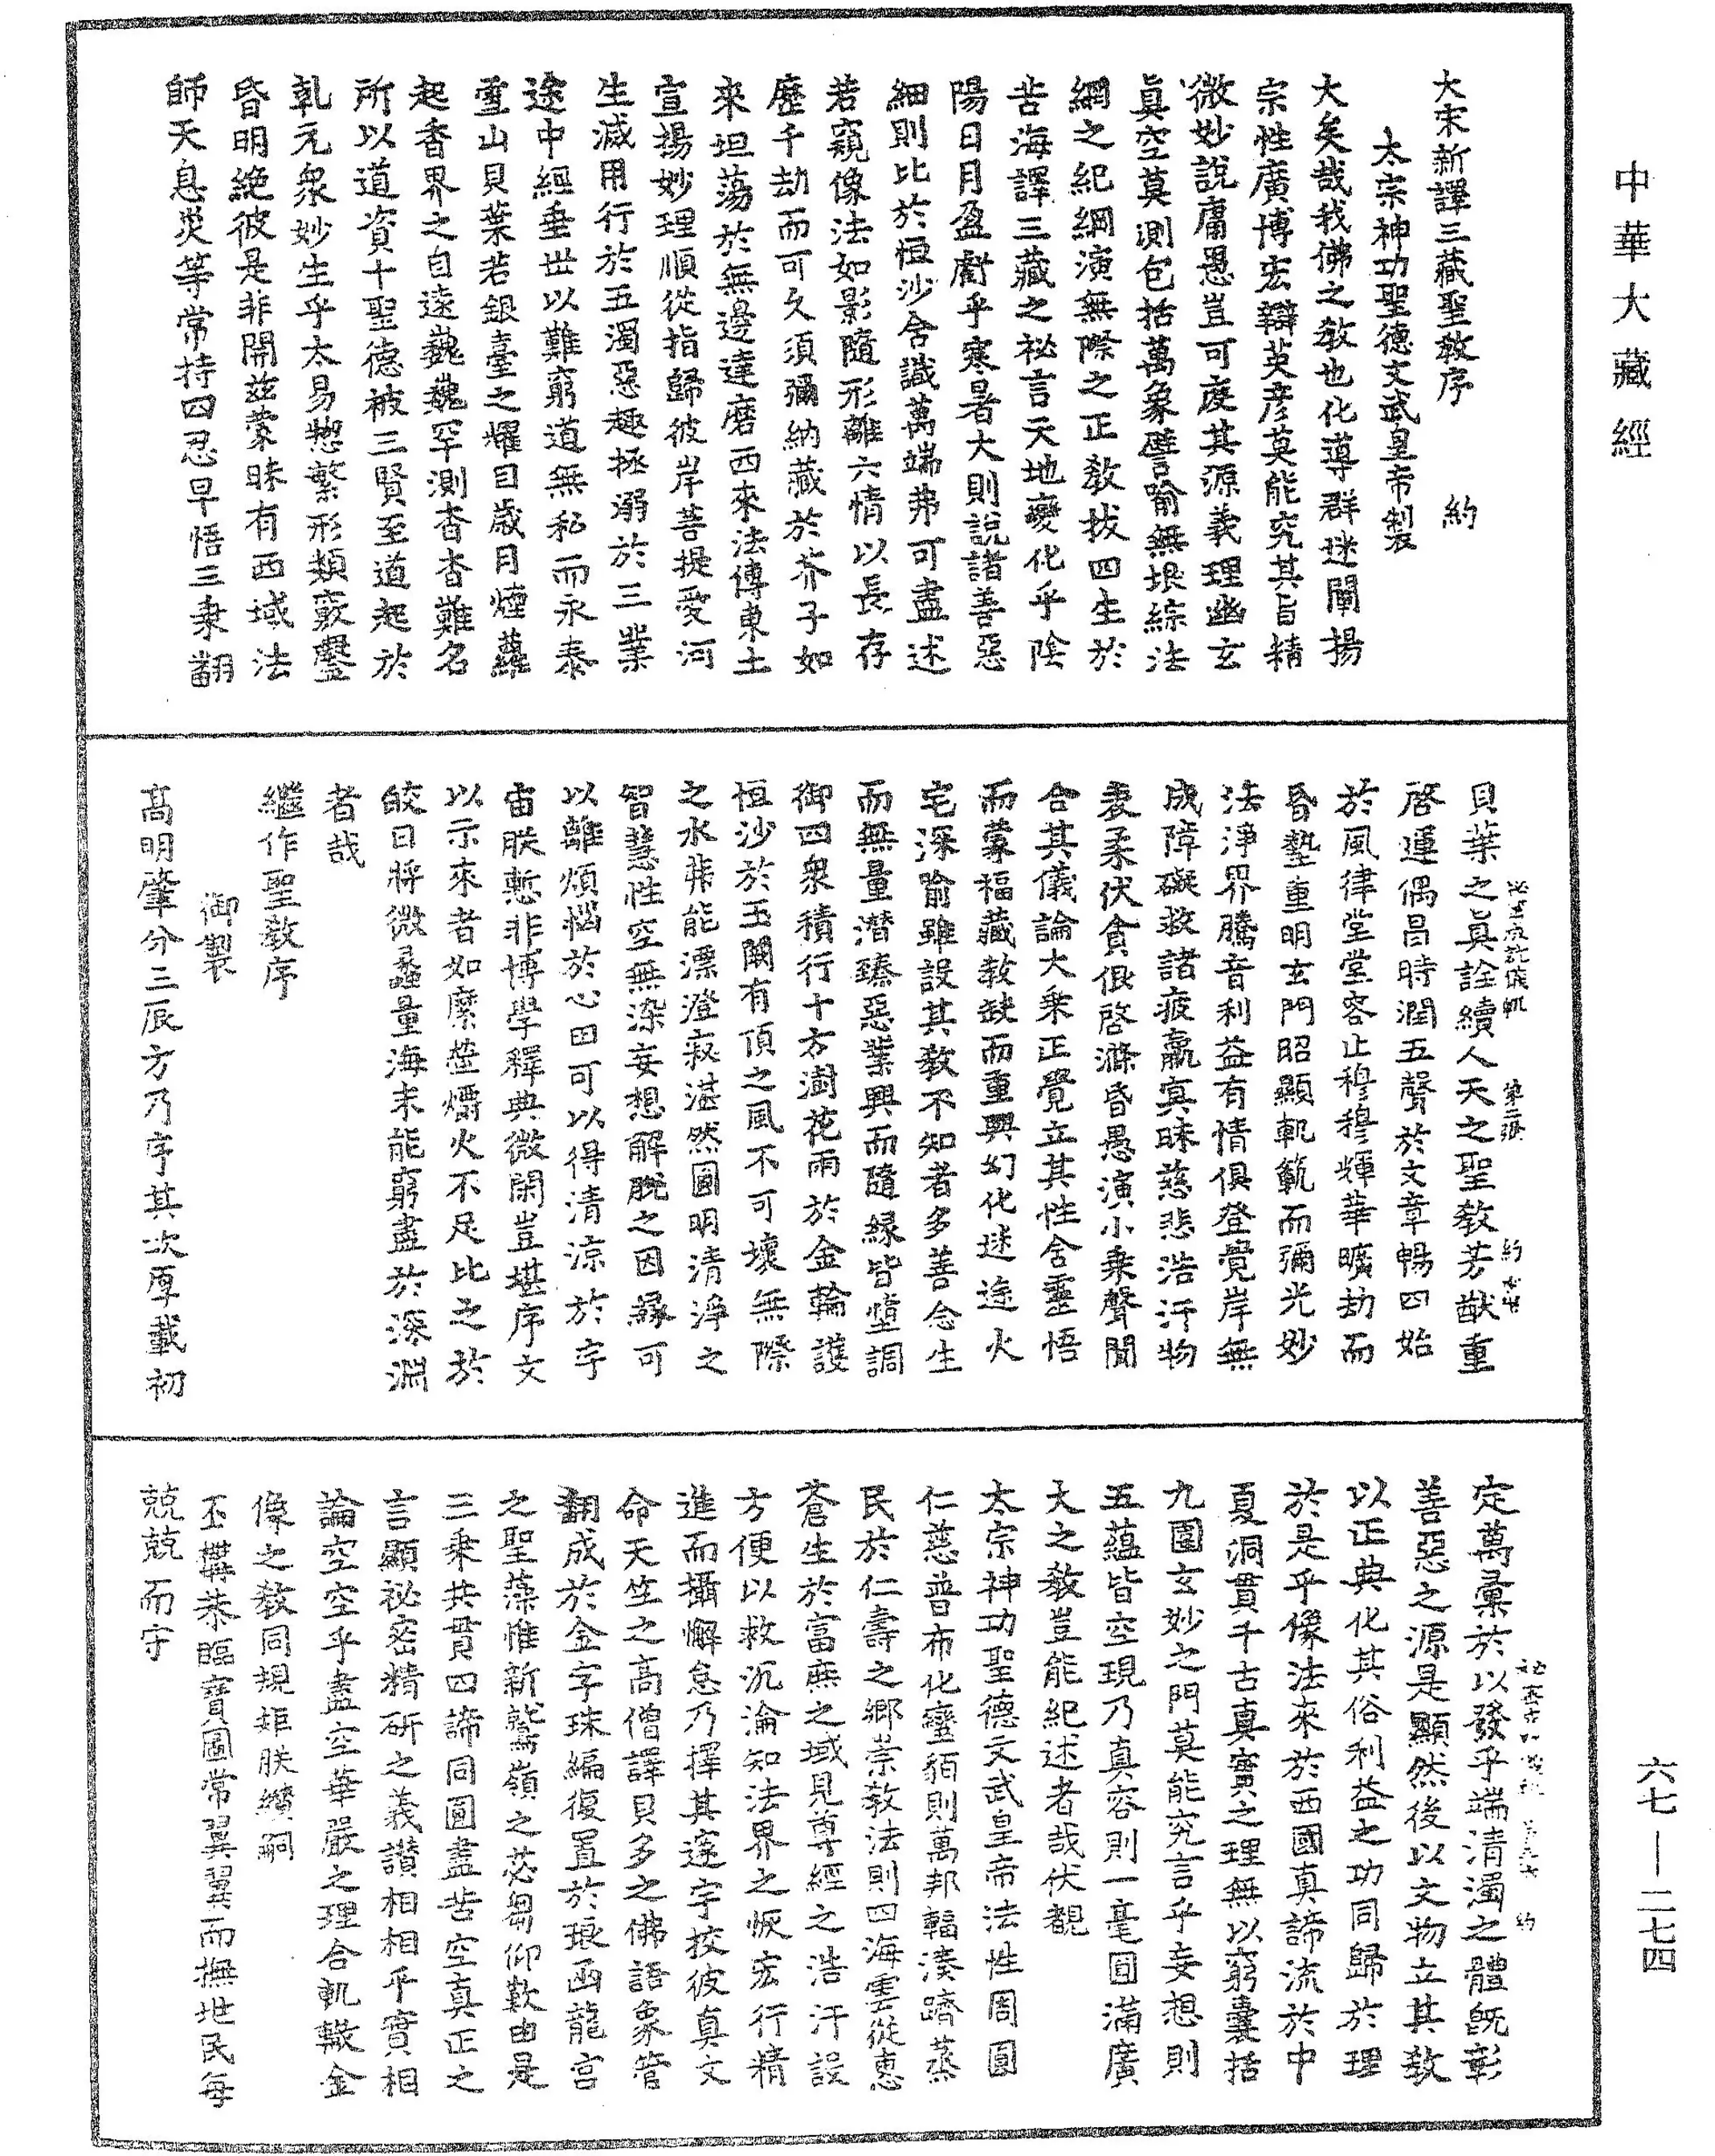 中華大藏經
大宋新譯三藏聖教序 約
太宗神功聖德文武皇帝製
大矣哉我佛之教也化導群迷闡揚
宗性廣博宏辯英彥莫能究其旨精
微妙說庸愚豈可度其源義理幽玄
真空莫測包括萬象譬喻無垠綜法
網之紀綱演無際之正教拔四生於
苦海譯三藏之祕言天地變化乎陰
陽日月盈虧乎寒暑大則說諸善惡
細則比於恒沙含識萬端弗可盡述
若窺像法如影隨形離六情以長存
歷千劫而可久須彌納藏於芥子如
來坦蕩於無邊達磨西來法傳東土
宣揚妙理順從指歸彼岸菩提愛河
生滅用行於五濁惡趣拯溺於三業
途中經垂世以難窮道無私而永泰
雪山貝葉若銀臺之耀目歲月煙蘿
起香界之自遠巍巍罕測杳杳難名
所以道資十聖德被三賢至道起於
乹元衆妙生乎太易揔繁形類竅鑿
昏明絶彼是非開兹蒙昧有西域法
師天息災等常持四忍早悟三乗翻
貝葉之真詮續人天之聖教芳猷重
啓運偶昌時潤五聲於文章暢四始
於風律堂堂容止穆穆輝華曠劫而
昏墊重明玄門昭顯軌範而彌光妙
法淨界騰音利益有情俱登覺岸無
成障礙救諸疲羸冥昧慈悲浩汗物
表柔伏貪佷啓滌昏愚演小乗聲聞
合其儀論大乗正覺立其性含靈悟
而蒙福藏教缺而重興幻化迷途火
宅深喻雖設其教不知者多善念生
而無量潛臻惡業興而隨緣皆墮調
御四衆積行十方澍花雨於金輪護
恒沙於玉闕有頂之風不可壞無際
之水弗能漂澄寂湛然圓明清淨之
智慧性空無染妄想解脫之因緣可
以離煩惱於心田可以得清涼於宇
宙朕慙非博學釋典微閑豈堪序文
以示來者如縻螢爝火不足比之於
皎日將微蠡量海未能窮盡於深淵
者哉
繼作聖教序
御製
髙明肇分三辰方乃序其次厚載初
定萬彙於以發乎端清濁之體既彰
善惡之源是顯然後以文物立其教
以正典化其俗利益之功同歸於理
於是乎像法來於西國真諦流於中
夏洞貫千古真實之理無以窮囊括
九圍玄妙之門莫能究言乎妄想則
五蘊皆空現乃真容則一毫圓滿廣
大之教豈能紀述者哉伏覩
太宗神功聖德文武皇帝法性周圓
仁慈普布化蠻貊則萬邦輻湊躋蒸
民於仁壽之鄉崇教法則四海雲從惠
蒼生於富庶之域見尊經之浩汗設
方便以救沉淪知法界之恢宏行精
進而攝懈怠乃擇其邃宇挍彼真文
命天竺之高僧譯貝多之佛語象管
翻成於金字珠編復置於琅函龍宮
之聖藻惟新鷲嶺之苾芻仰歎由是
三乗共貫四諦同圓盡苦空真正之
言顯祕密精研之義讚相相乎實相
論空空乎盡空華嚴之理合軌轍金
僊之教同規矩朕纘嗣
丕搆恭臨寶圖常翼翼而撫地民每
兢兢而守
六七—二七四